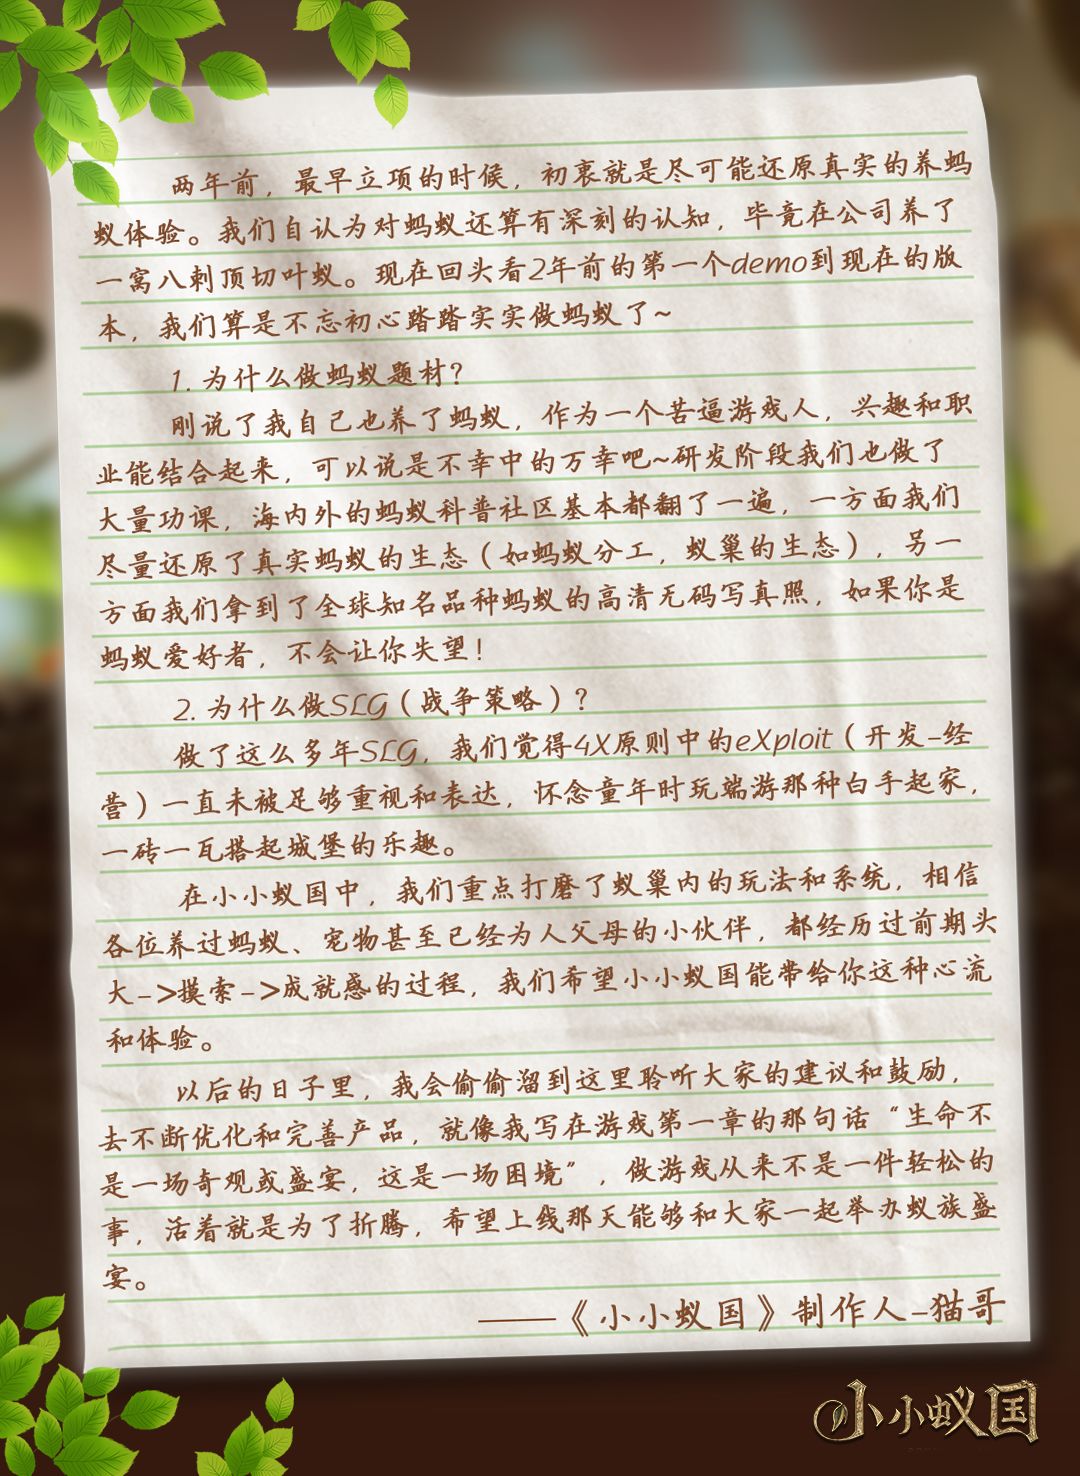 两年前，最早立项的时候，初衷就是尽可能还原真实的养蚂
蚁体验。我们自认为对蚂蚁还算有深刻的认知，毕竟在公司养了
一窝八刺顶切叶蚁。现在回头看2年前的第一个demo到现在的版
本，我们算是不忘初心踏踏实实做蚂蚁了~
1. 为什么做蚂蚁题材？
刚说了我自己也养了蚂蚁，作为一个苦逼游戏人，兴趣和职
业能结合起来，可以说是不幸中的万幸吧~研发阶段我们也做了
大量功课，海内外的蚂蚁科普社区基本都翻了一遍，一方面我们
尽量还原了真实蚂蚁的生态（如蚂蚁分工，蚁巢的生态），另一
方面我们拿到了全球知名品种蚂蚁的高清无码写真照，如果你是
蚂蚁爱好者，不会让你失望！
2. 为什么做SLG（战争策略）？
做了这么多年SLG，我们觉得4X原则中的eXploit（开发-经
营）一直未被足够重视和表达，怀念童年时玩端游那种白手起家，
一砖一瓦搭起城堡的乐趣。
在小小蚁国中，我们重点打磨了蚁巢内的玩法和系统，相信
各位养过蚂蚁、宠物甚至已经为人父母的小伙伴，都经历过前期头
大->摸索->成就感的过程，我们希望小小蚁国能带给你这种心流
和体验。
以后的日子里，我会偷偷溜到这里聆听大家的建议和鼓励，
去不断优化和完善产品，就像我写在游戏第一章的那句话“生命不
是一场奇观或盛宴，这是一场困境”，做游戏从来不是一件轻松的
事，活着就是为了折腾，希望上线那天能够和大家一起举办蚁族盛
宴。
——《小小蚁国》制作人-猫哥
小小蚁国